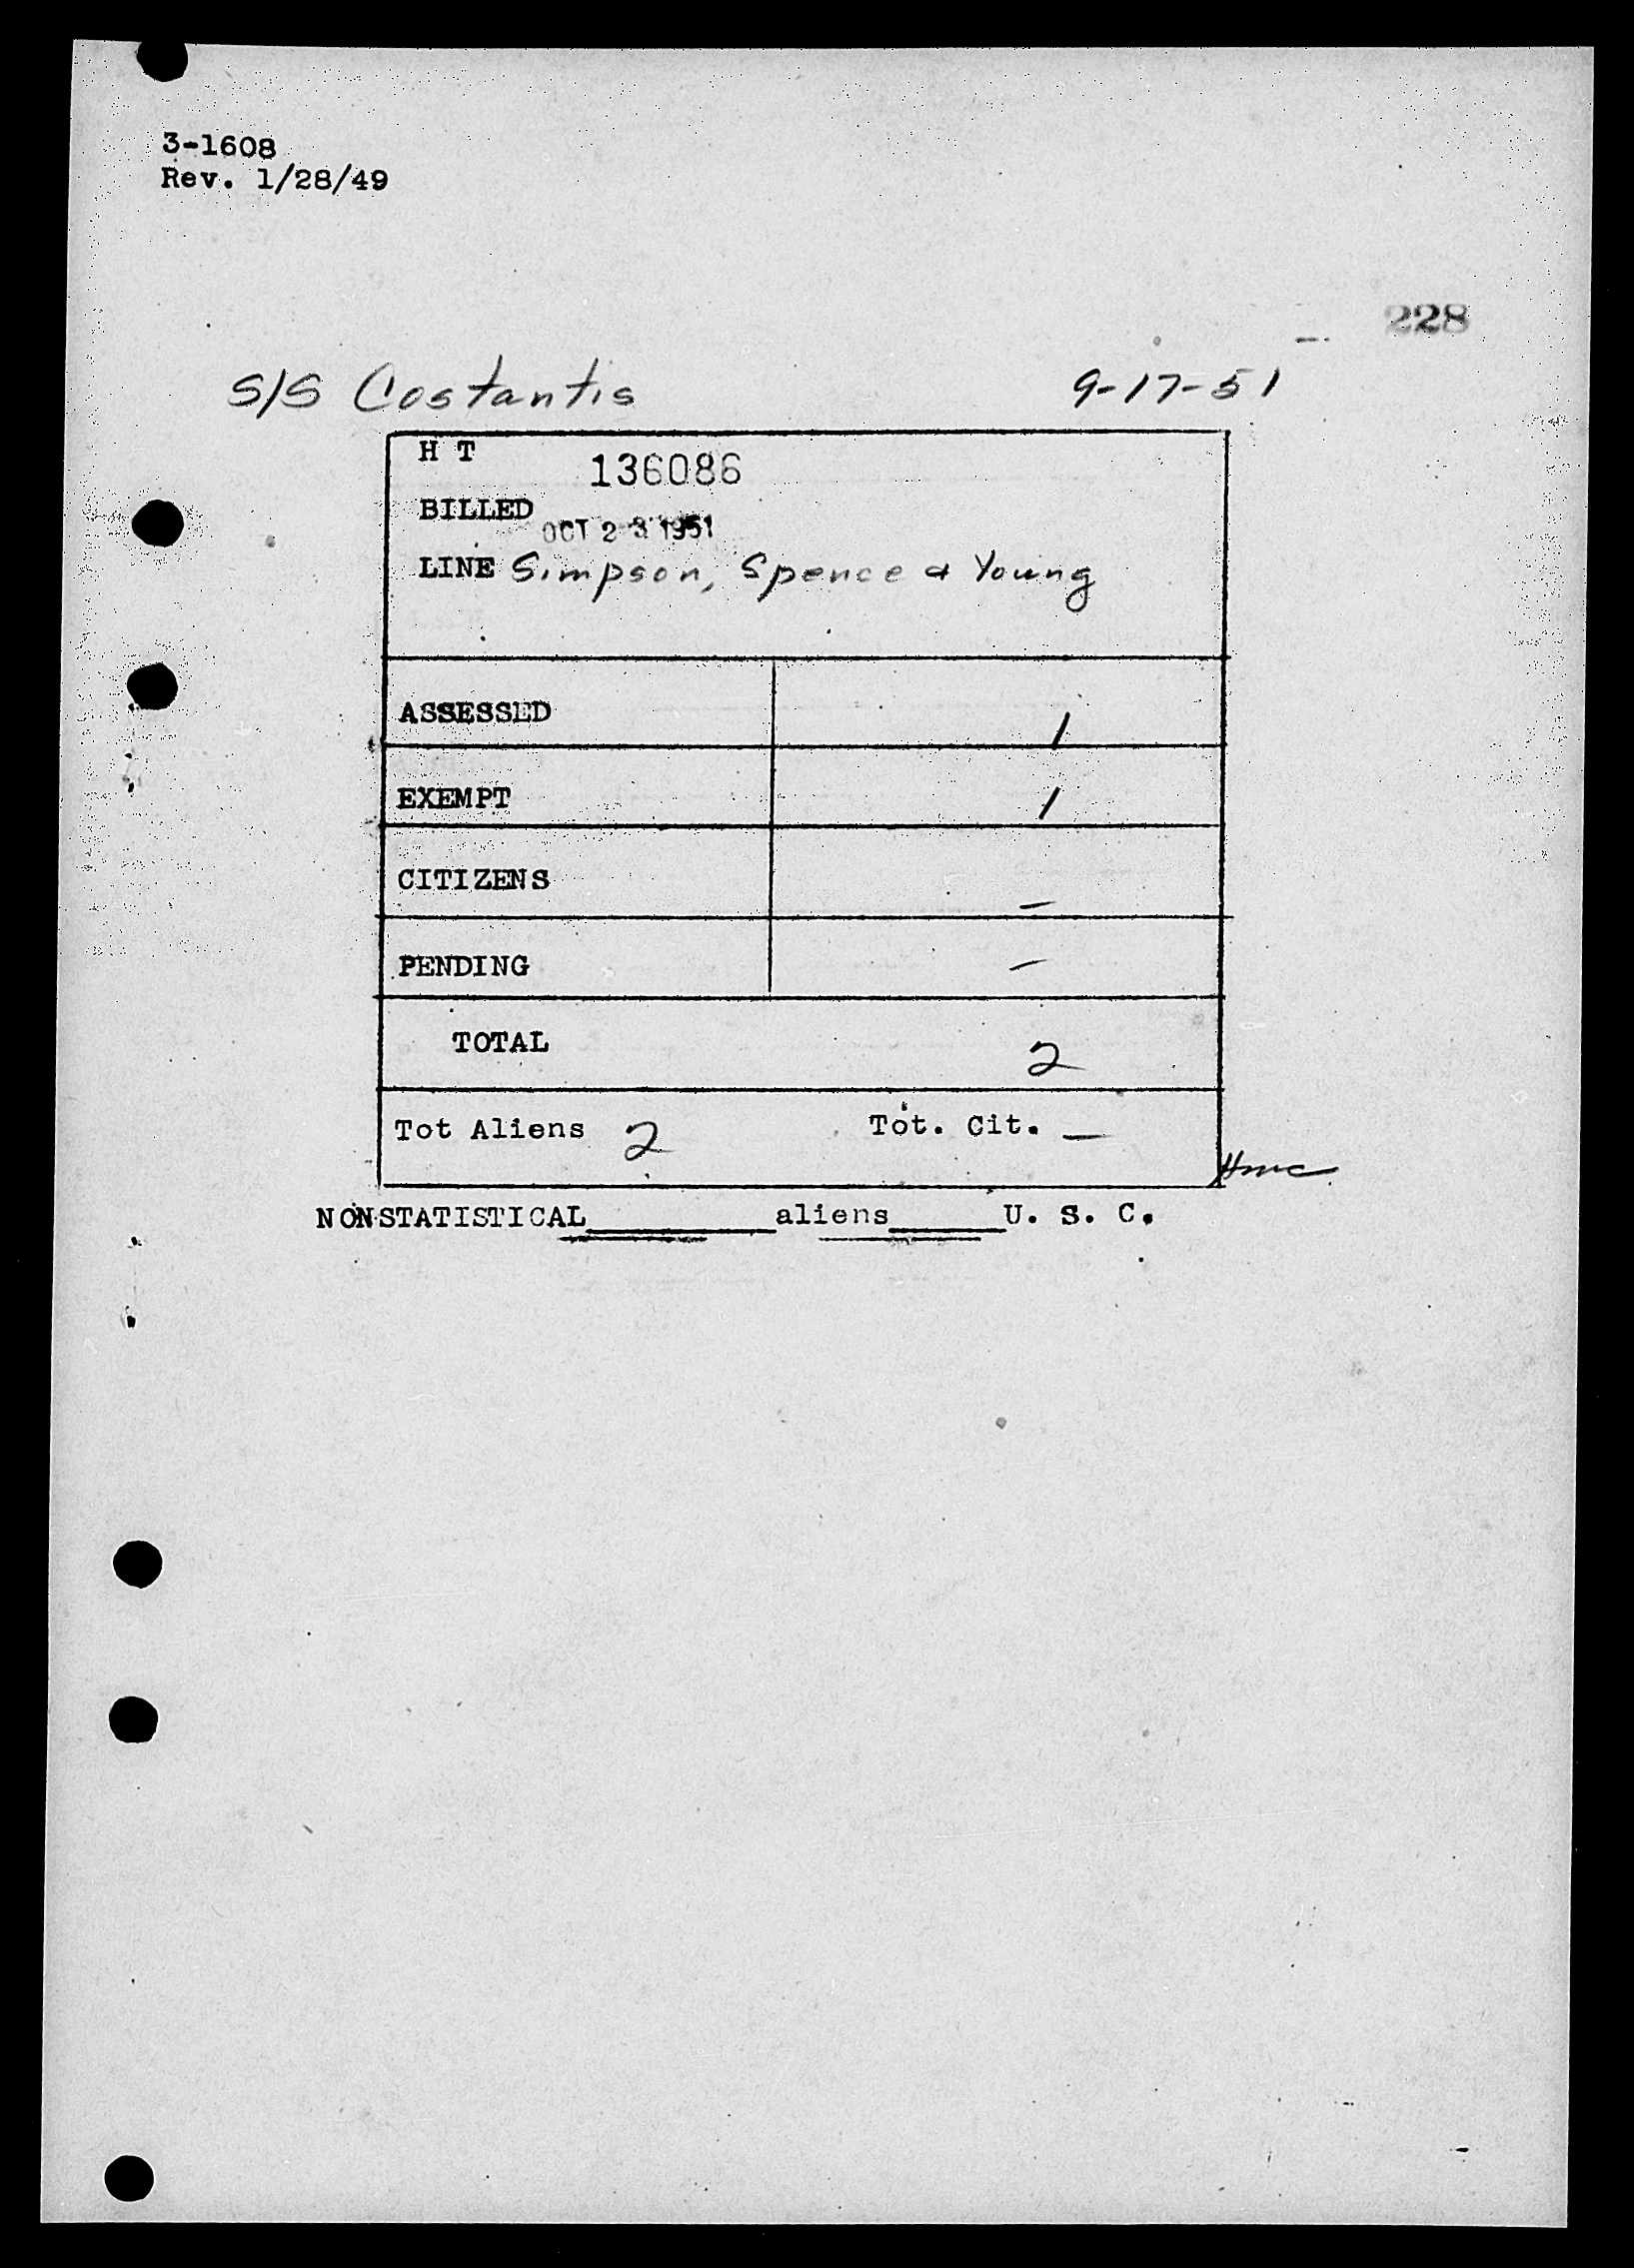 3-1608
Rev. 1/28/49
228
S/S Costantis 9-17-51
H T 136086
BILLED OCT 23 1951
LINE Simpson, Spence & Young
ASSESSED 1
EXEMPT 1
CITIZENS –
PENDING –
TOTAL 2
Tot Aliens 2 Tot. Cit. –
NONSTATISTICAL________aliens_____U. S. C.